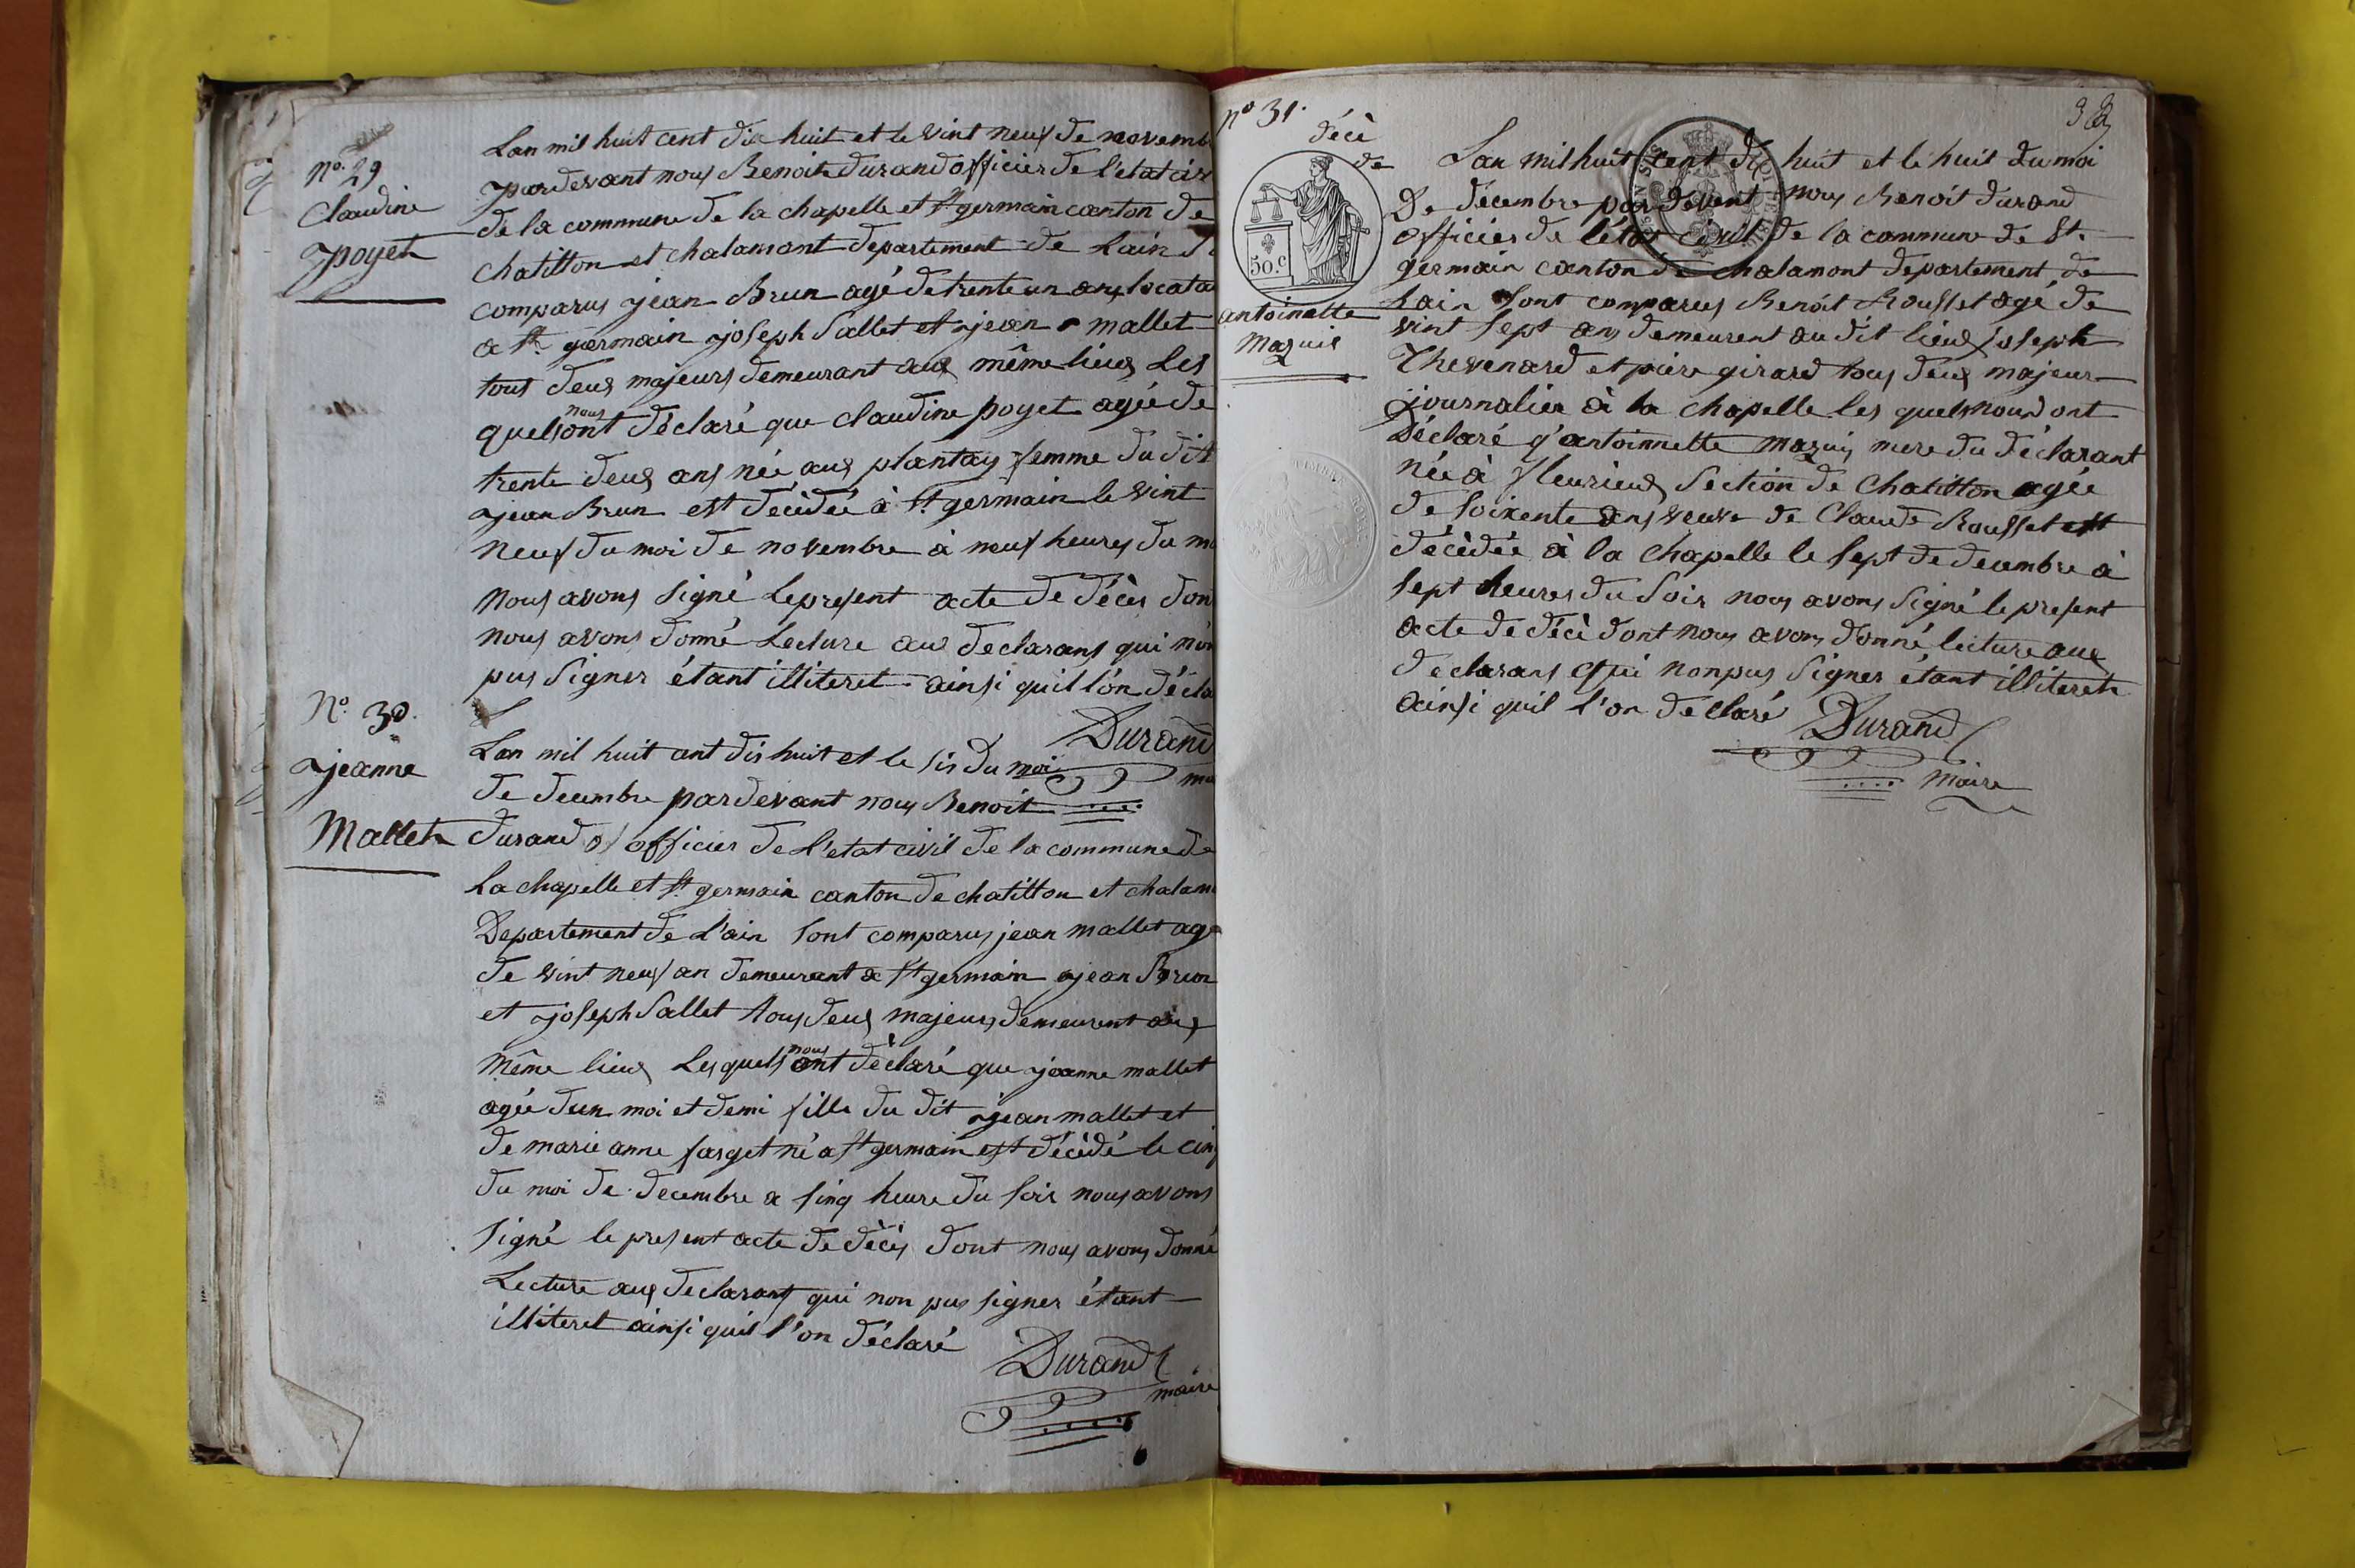 n.o 29
Claudine
poyet
Lan mil huit cent dix huit et le vint neuf de novemb
pardevant nous Benoit durand officier de l'etat civ
de la commune de la chapelle et St germain canton de
chatillon et chalamont departement de Lain
comparus jean Brun agé de trente un ans locata
a St germain joseph Sallet et jean mallet
tout deux majeurs demeurant aux même lieux Les
quels nous ont déclaré que claudine poyet agée de
trente deux ans née aux plantay femme du dit
jean Brun est décédée à St germain le vint
neuf du moi de novembre à neuf heures du m
nous avons signé le present acte de décès don
nous avons donné Lecture aux declarans qui n'on
pus signer étant illiteret ainsi quil l'on décla
Durand
N.o 30.
jeanne
Mallet
Lan mil huit cent dis huit et le sis du moi
de decembre pardevant nous Benoit
durand of officier de L'etat civil de la commune de
La chapelle et St germain canton de chatillon et chalam
Departement de L'ain sont comparus jean mallet ag
de vint neuf an demeurant a St germain jean Brun
et joseph Sallet tous deux majeurs demeurent aux
même lieux Lesquels nous ont déclaré que jeanne mallet
agée d'un moi et demi fille du dit jean mallet et
de marie anne farget né a St germain est décédé le cinq
du moi de decembre a sinq heure du soir nous avons
signé le present acte de décès dont nous avons donné
Lecture aux declarant qui non pus signer étant
illiteret ainsi quil l'on déclaré
Durand
maire
n.o 31.
décè
de
50.c
antoinette
Mazuis
TIMBRE ROYAL
Lan mil huit cent dix huit et le huit du moi
De décembre par devent nous Benoit durand
officier de l'état civil de la commune de St.
germain canton de chalamont departement de
Lain sont comparus Benoit Rousset agé de
vint sept ans demeurent au dit lieux joseph
Thevenard et piere girard tous deux majeur
journalier à la chapelle les quels nous ont
Déclaré q'antoinnette mazuis mere du déclarant
née à fleurieux section de Chatillon agée
de soixente ans veuve de Claude Rousset est
décèdée à la chapelle le sept de decembre à
sept heures du soir nous avons signé le present
acte de décè dont nous avons donné lecture aux
declarans qui non pus signer étant illiteret
ainsi quil l'on declaré
Durand
maire